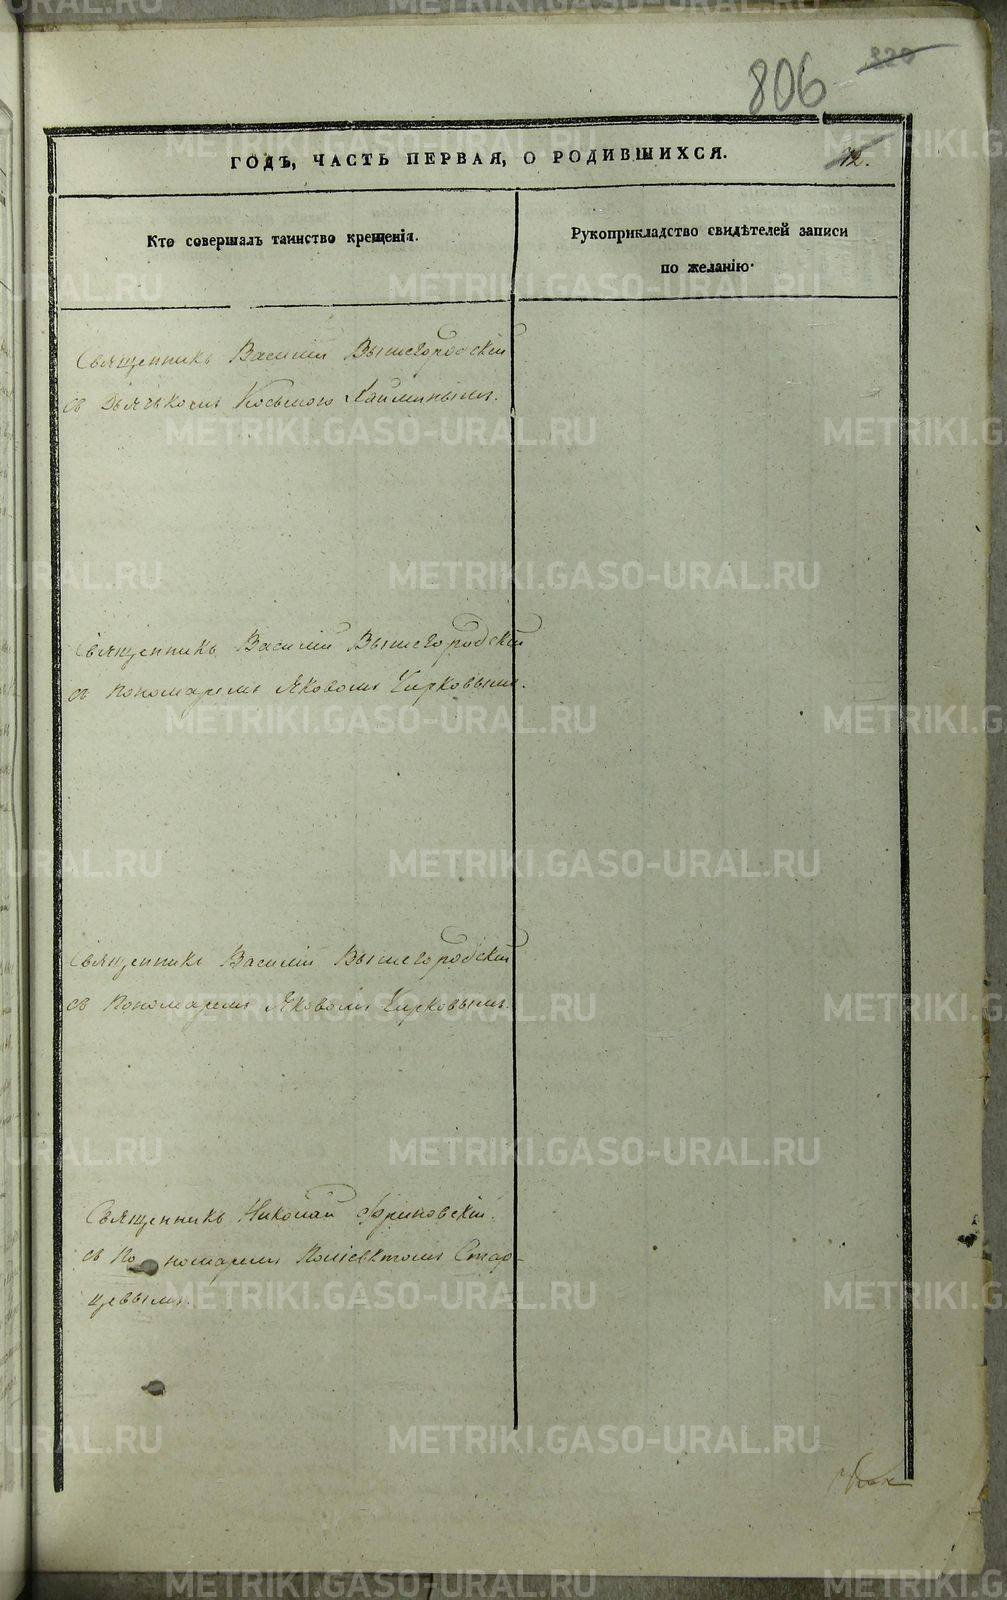 806
ГОДЪ, ЧАСТЬ ПЕРВАЯ, О РОДИВШИХСЯ.
12.
Кто совершалъ таинство крещенія.
Рукоприкладство свидѣтелей записи
по желанію.
Священникъ Василій Вышегородскій
съ Дьячькомъ Косьмою
Священникъ Василій Вышегородскій
съ Пономаремъ Яковомъ Чирковымъ.
Священникъ Василій Вышегородскій
съ Пономаремъ Яковомъ Чирковымъ.
Священникъ Николай
съ По номаремъ Поліевктомъ Стар-
цевымъ.
METRIKI.GASO-URAL.RU